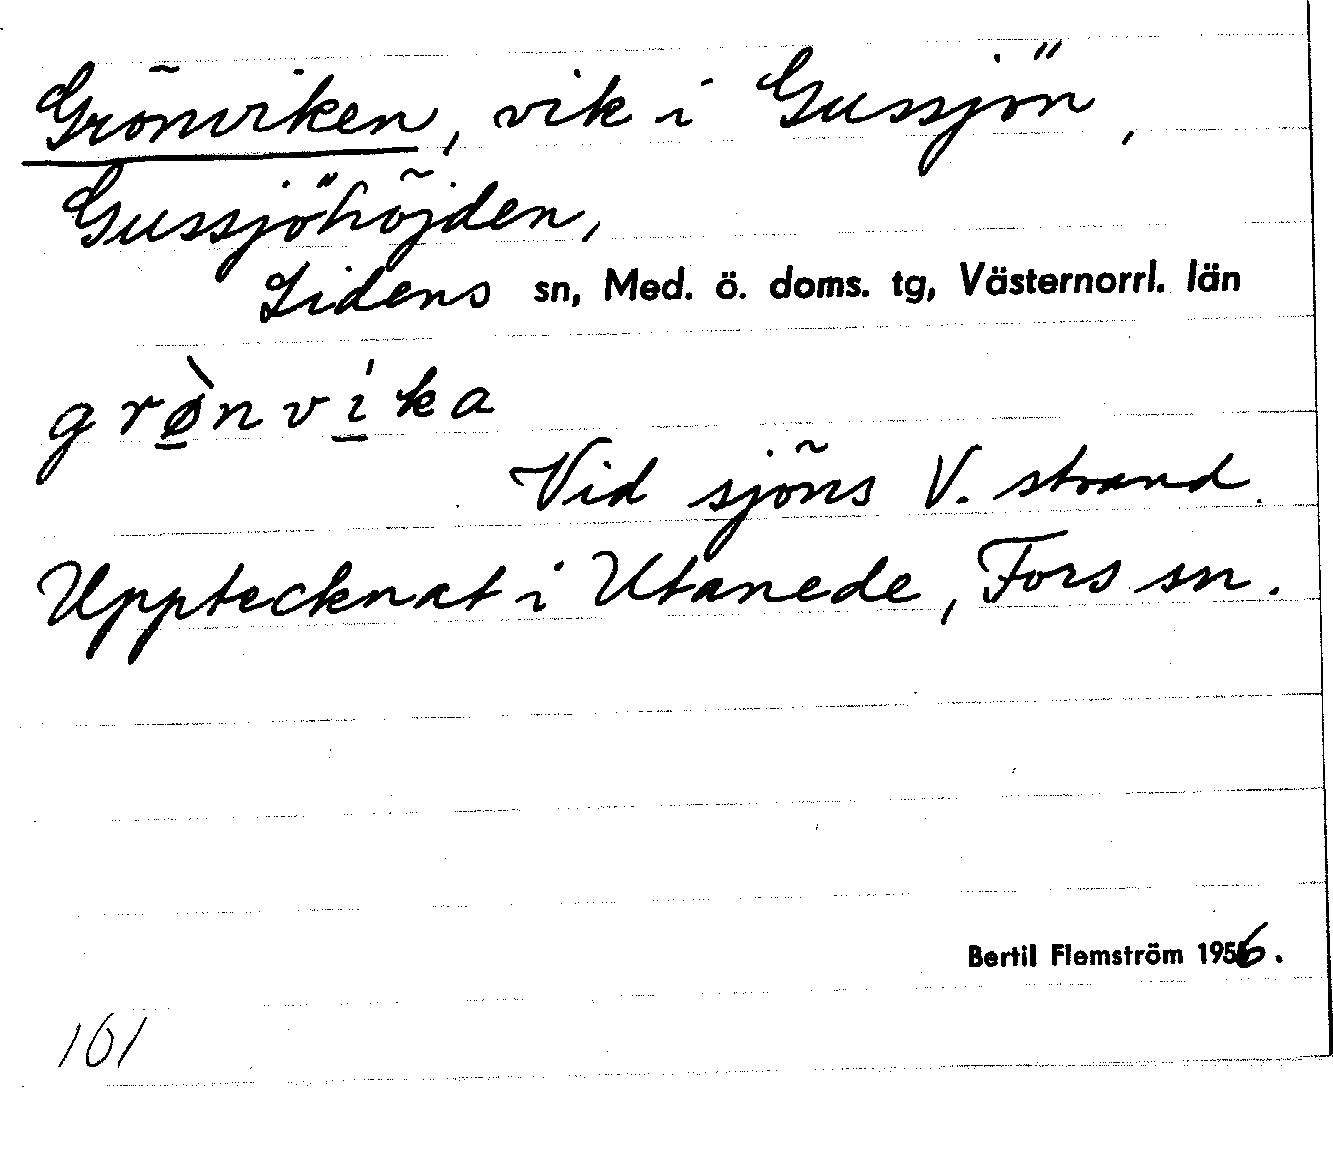 Grönviken, vik i Gussjön,
Gussjöhöjden,
Lidens sn, Med. ö. doms. tg, Västernorrl. län
grø̀nvi̍ka
Vid sjöns V. strand.
Upptecknat i Utanede, Fors sn.
Bertil Flemström 1956.
161